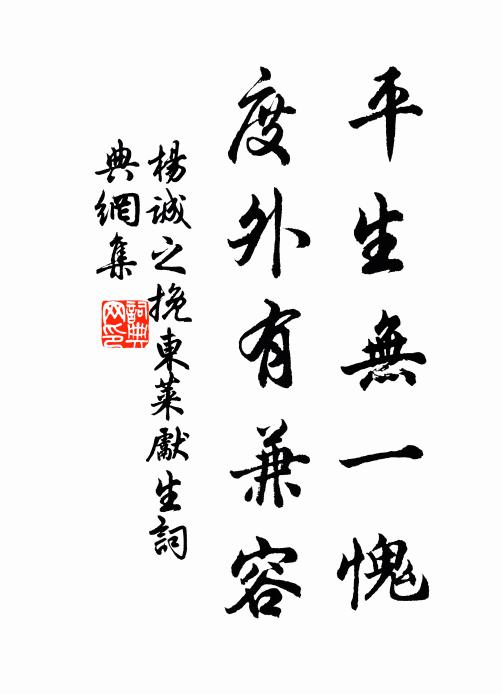 平生無一愧
度外有兼容
楊誠之挽東萊獻生詞
典網集
詞典
网印